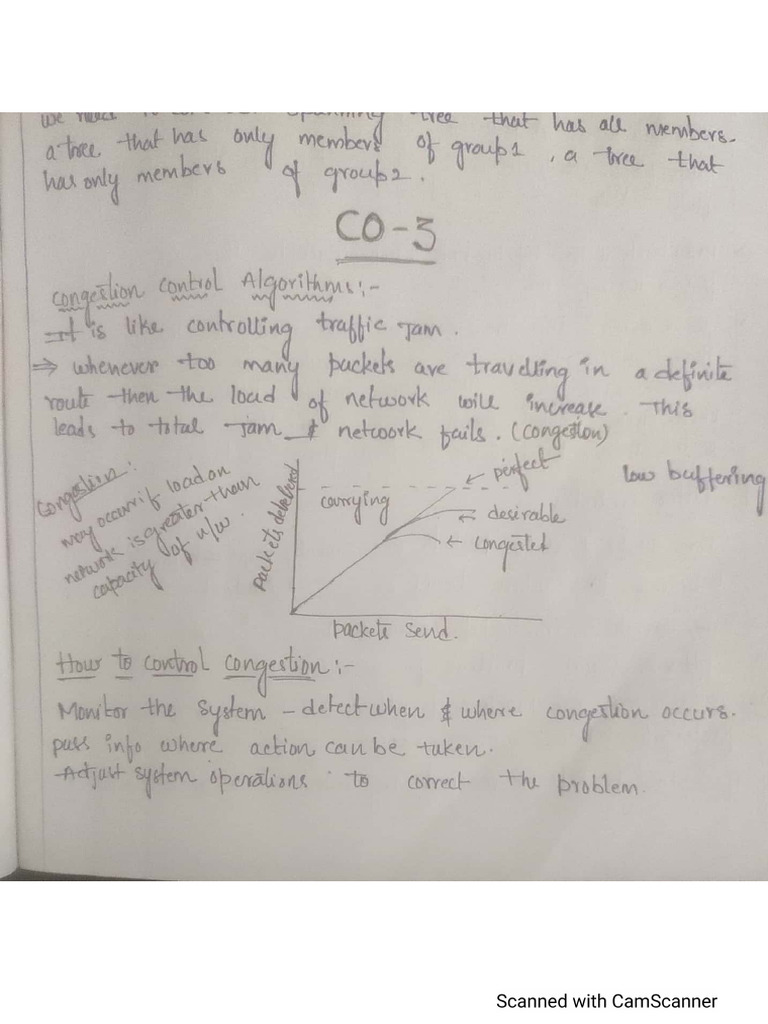 tree that has all members.
a tree that has only members of group1, a tree that
has only members of group2.
CO-3
Congestion control Algorithms:-
It is like controlling traffic Jam.
⇒ whenever too many packets are travelling in a definite
route then the load of network will increase. This
leads to total Jam & network fails. (Congestion)
Congestion:
may occur if load on
network is greater than
capacity of n/w.
Packets delivered
carrying
← perfect
← desirable
← congested
packets send.
low buffering
How to control congestion:-
Monitor the system - detect when & where congestion occurs.
pass info where action can be taken.
Adjust system operations to correct the problem.
Scanned with CamScanner